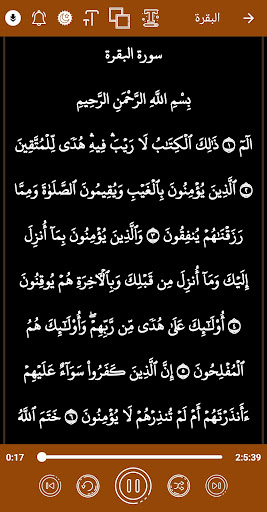 البقرة
سورة البقرة
بِسْمِ اللَّهِ الرَّحْمَنِ الرَّحِيمِ
الٓمٓ ۝١ ذَٰلِكَ ٱلْكِتَٰبُ لَا رَيْبَۛ فِيهِۛ هُدًى لِّلْمُتَّقِينَ
۝٢ ٱلَّذِينَ يُؤْمِنُونَ بِٱلْغَيْبِ وَيُقِيمُونَ ٱلصَّلَوٰةَ وَمِمَّا
رَزَقْنَٰهُمْ يُنفِقُونَ ۝٣ وَٱلَّذِينَ يُؤْمِنُونَ بِمَآ أُنزِلَ
إِلَيْكَ وَمَآ أُنزِلَ مِن قَبْلِكَ وَبِٱلْءَاخِرَةِ هُمْ يُوقِنُونَ
۝٤ أُو۟لَٰٓئِكَ عَلَىٰ هُدًى مِّن رَّبِّهِمْۖ وَأُو۟لَٰٓئِكَ هُمُ
ٱلْمُفْلِحُونَ ۝٥ إِنَّ ٱلَّذِينَ كَفَرُوا۟ سَوَآءٌ عَلَيْهِمْ
ءَأَنذَرْتَهُمْ أَمْ لَمْ تُنذِرْهُمْ لَا يُؤْمِنُونَ ۝٦ خَتَمَ ٱللَّهُ
0:17 2:5:39